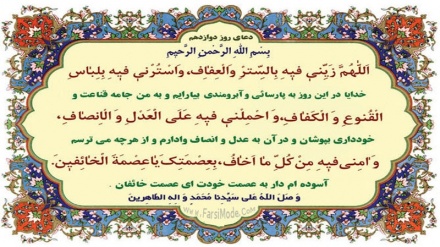 دعای روز دوازدهم
بِسْمِ اللهِ الرَّحْمنِ الرَّحیمِ
اَللّهُمَّ زَیِّنّی فیهِ بِالسِّترِ وَالْعِفافِ، وَاسْتُرْنی فیهِ بِلِباسِ
خدایا در این روز به پارسائی و آبرومندی بیارایم و به من جامه قناعت و
الْقُنوعِ وَ الْکَفافِ، وَ احْمِلْنی فیهِ عَلَی الْعَدْلِ وَ الْاِنصافِ،
خودداری بپوشان و در آن به عدل و انصاف وادارم و از هرچه می ترسم
وَ امِنّی فیهِ مِنْ کُلِّ ما اَخافُ، بِعِصْمَتِکَ یا عِصْمَةَ الْخائفینَ.
آسوده ام دار به عصمت خودت ای عصمت خائفان .
وَ صَلَّ اللهُ عَلی سَیِّدِنا مُحَمَّدٍ وَ الِهِ الطّاهِرینَ
www.FarsiMode.COM